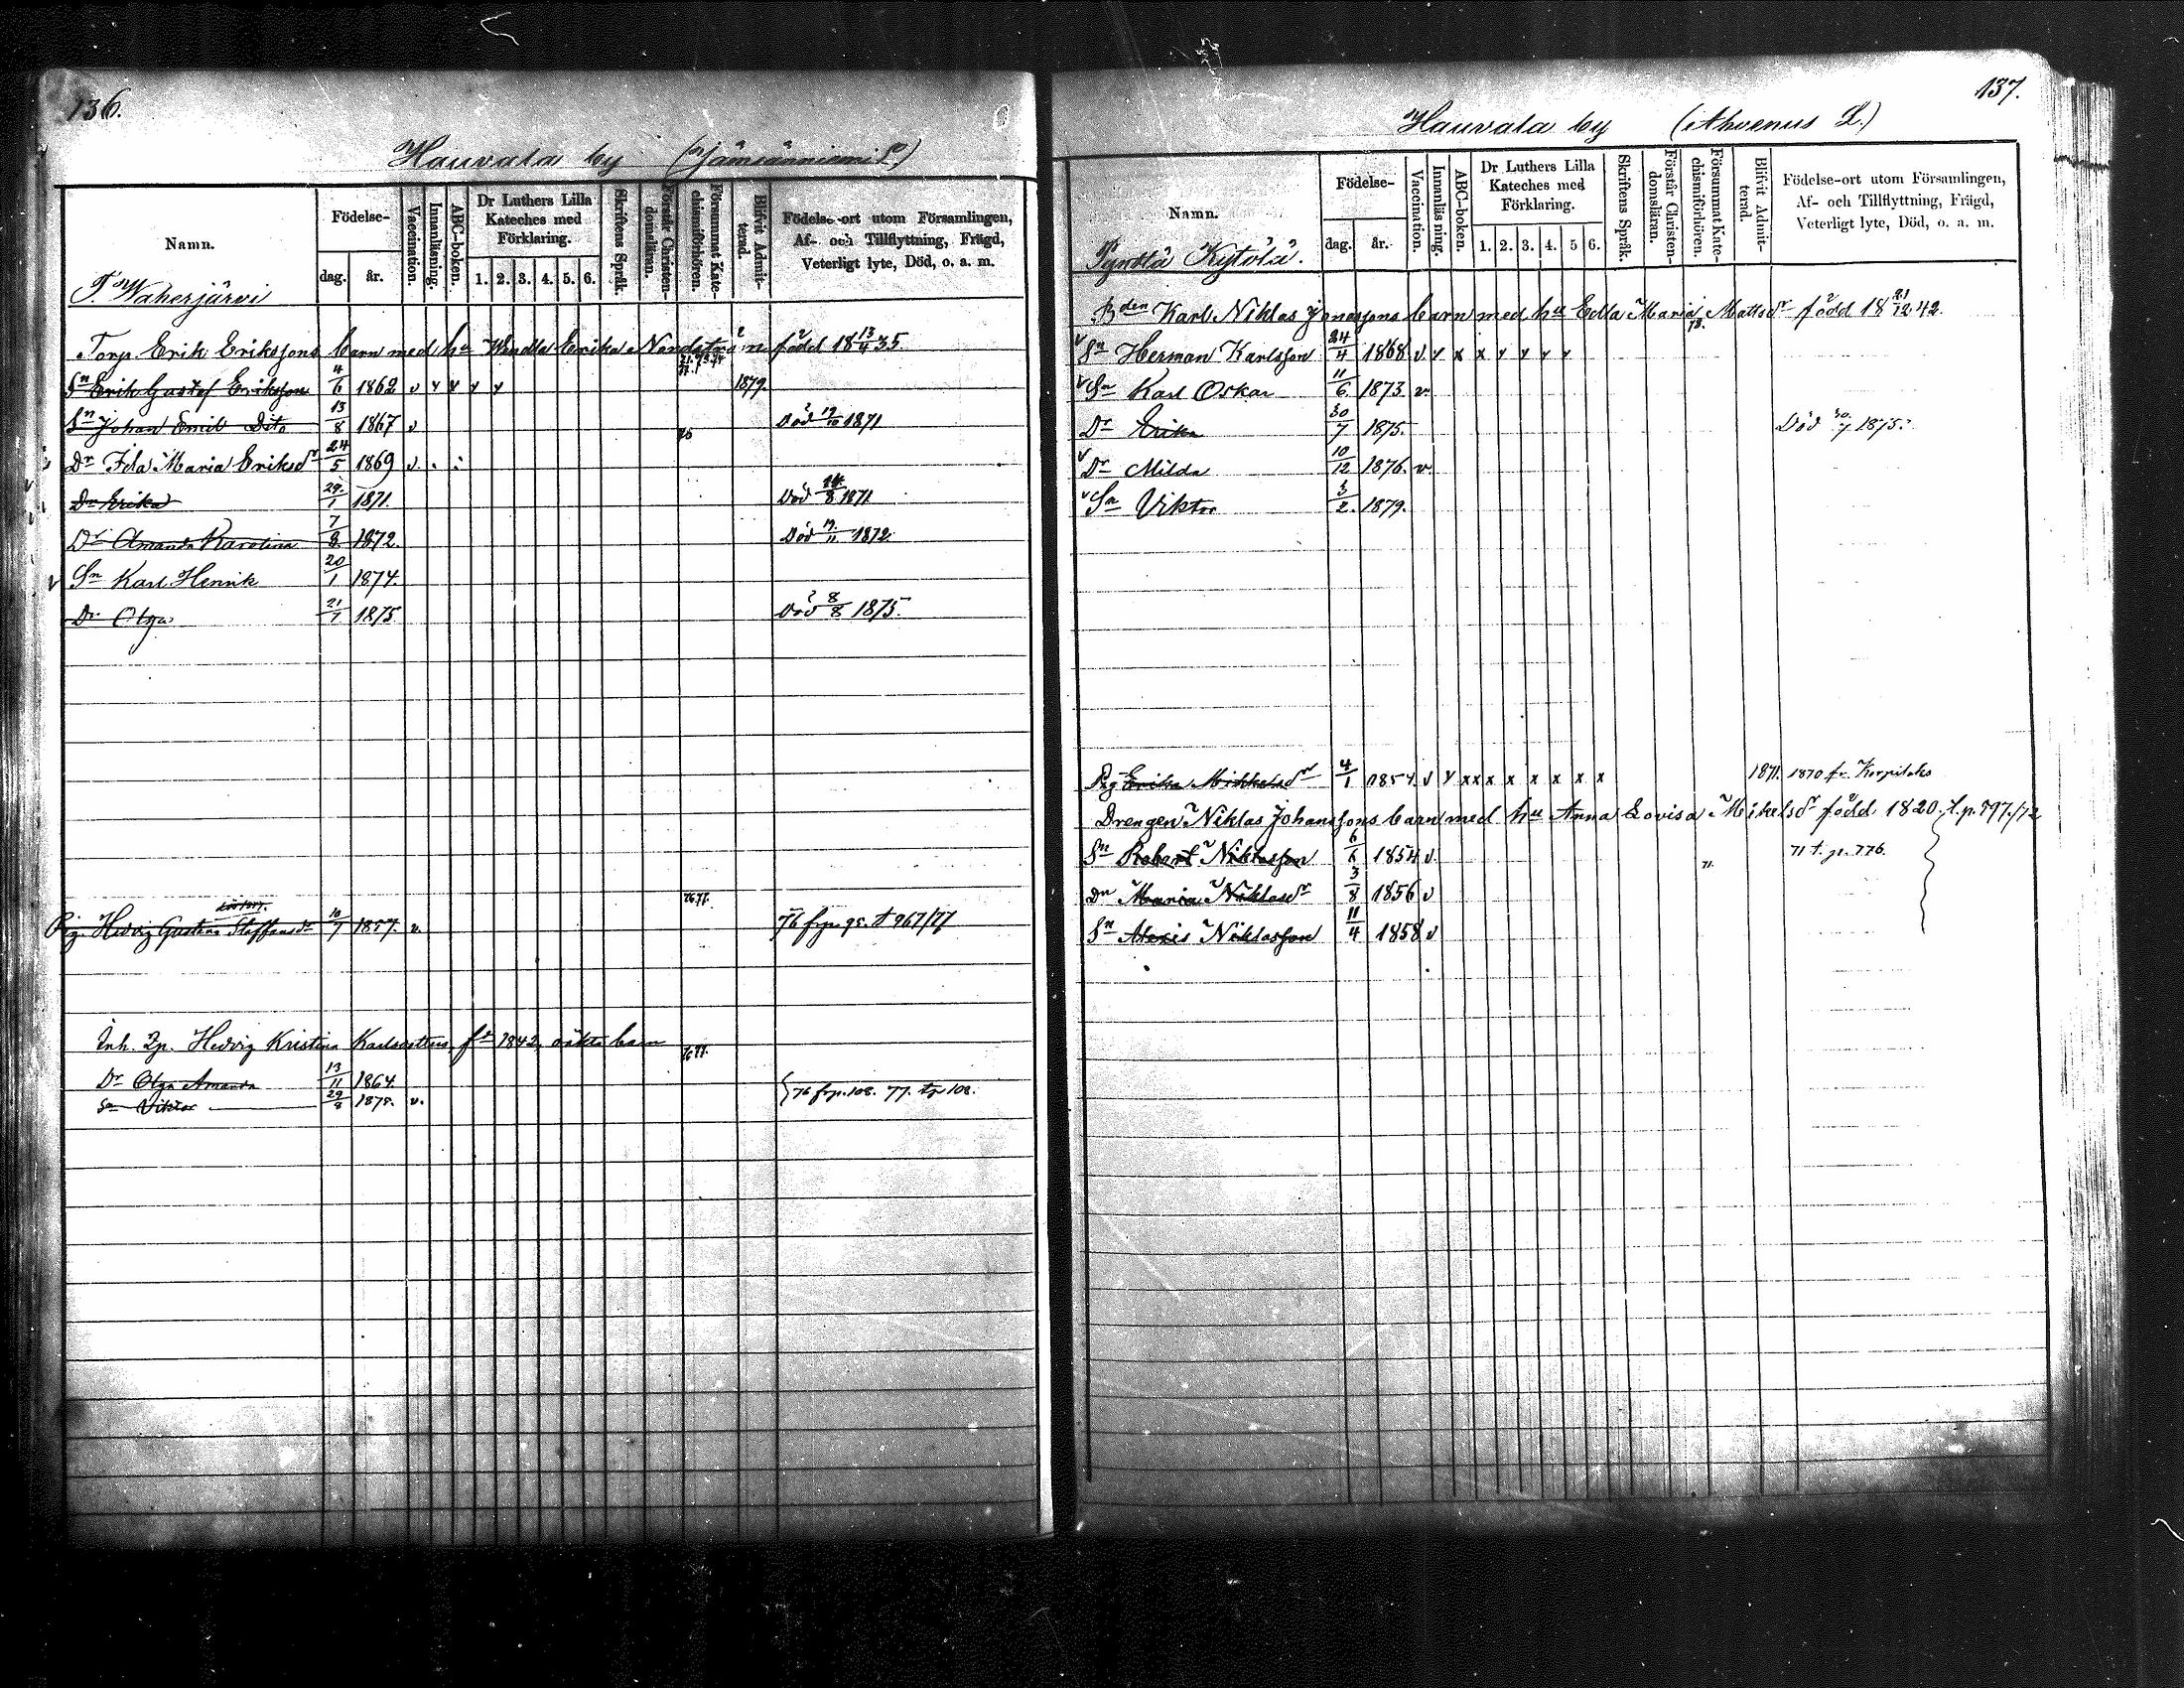 136.
Hauvala by (Jämsänniemi
Namn.
Födelse-
dag. år.
Vaccination.
Innanläsning.
ABC-boken.
Dr Luthers Lilla Kateches med Förklaring.
1. 2. 3. 4. 5. 6.
Skriftens Språk.
Förstår Christendomsläran.
Försummat Katechismiförhören.
Blifvit Admitterad.
Födelse-ort utom Församlingen,
Af- och Tillflyttning, Frägd,
Veterligt lyte, Död, o. a. m.
T. Waherjärvi
Torp. Erik Erikssons barn med hu Wendla Erika Nordström född 18 13/4 35.
Sn Erik Gustaf Eriksson 4/6 1862 v v v v v 1879.
Sn Johan Emil Dito 13/8 1867 v Död 19/10 1871
Dr Ida Maria Eriksdr 24/5 1869 v 76
Dr Erika 29/1 1871. Död 14/8 1871
Dr Amanda Karolina 7/8 1872. Död 17/11 1872
v Sn Karl Henrik 20/1 1874.
Dr Olga 21/7 1875 Död 8/8 1875.
76.77.
Pig. Hedvig Gustava Staffansdr 10/7 1857. v. 76 frp. 95. t 967/77
Inh. Qp. Hedvig Kristina Karlsdotters, f. 1842, oäkta barn 76 77.
Dr Olga Amanda 13/11 1864
Sn Viktor 29/8 1875. v. } 76 frp. 108. 77. tp 108.
137.
Hauvala by (Ahvenus L.)
Namn.
Födelse-
dag. år.
Vaccination.
Innanläsning.
ABC-boken.
Dr Luthers Lilla
Kateches med
Förklaring.
1. 2. 3. 4. 5 6.
Skriftens Språk.
Förstår Christendomsläran.
Försummat Katechismiförhören.
Blifvit Admitterad.
Födelse-ort utom Församlingen,
Af- och Tillflyttning, Frägd,
Veterligt lyte, Död, o. a. m.
Pynttä Kytölä.
Bden Karl Niklas Jonassons barn med hu Edla Maria Mattsdr född 18 21/12 42.
v Sn Herman Karlsson 24/4 1868 v v x x v v v v
v Sn Karl Oskar 11/6 1873. v.
Dr Erika 30/7 1875. Död 30/7 1875.
v Dr Milda 10/12 1876. v.
v Sn Viktor 3/2 1879.
Pig Erika Mikkelsdr 4/1 1854. v v x x x x x x x x 1871. 1870 fr. Korpilaks
Drengen Niklas Johanssons barn med hu Anna Lovisa Mikelsdr född 1820. t. p. 797./72
Sn Robert Niklasson 6/6 1854 v. 71. 71 t. p. 776.
Dr Maria Niklasdr 3/8 1856 v
Sn Alexis Niklasson 11/4 1858 v